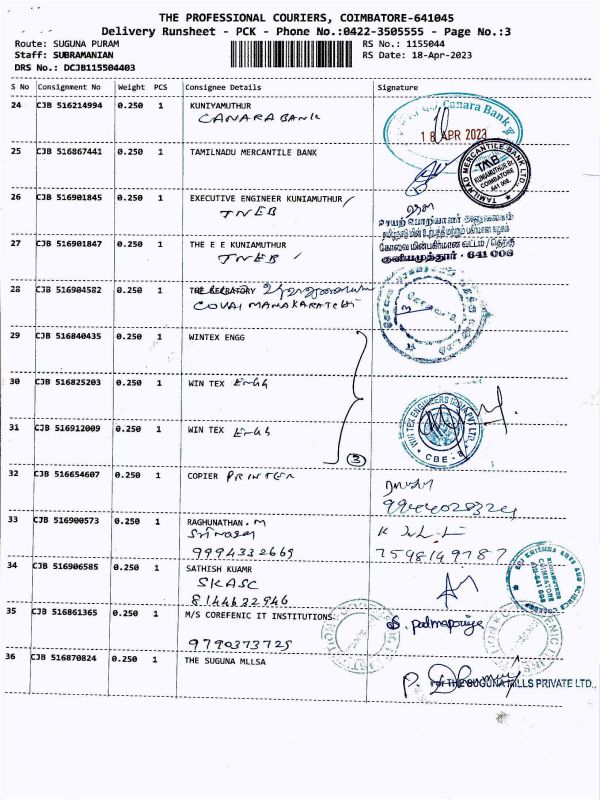 THE PROFESSIONAL COURIERS, COIMBATORE-641045
Delivery Runsheet - PCK - Phone No.:0422-3505555 - Page No.:3
Route: SUGUNA PURAM
RS No.: 1155044
Staff: SUBRAMANIAN
RS Date: 18-Apr-2023
DRS No.: DCJB115504403
S No Consignment No Weight PCS Consignee Details Signature
24 CJB 516214994 0.250 1 KUNIYAMUTHUR
CANARA BANK
Canara Bank
18 APR 2023
25 CJB 516867441 0.250 1 TAMILNADU MERCANTILE BANK
TAMILNAD MERCANTILE BANK LTD.
TMB
KUNIAMUTHUR BR.
COIMBATORE
641 008.
26 CJB 516901845 0.250 1 EXECUTIVE ENGINEER KUNIAMUTHUR
TNEB
செயற் பொறியாளர் அலுவலகம்
27 CJB 516901847 0.250 1 THE E E KUNIAMUTHUR
TNEB
கோவை மின்பகிர்மான வட்டம்/தெற்கு
குனியமுத்தூர் - 641 008
28 CJB 516904582 0.250 1 THE SECRATORY
COVAI MANAKARATCHI
29 CJB 516840435 0.250 1 WINTEX ENGG
30 CJB 516825203 0.250 1 WIN TEX ENGG
31 CJB 516912009 0.250 1 WIN TEX ENGG
3
WIN TEX ENGINEERS INDIA PVT LTD.,
CBE - 8
32 CJB 516654607 0.250 1 COPIER PRINTER
9944028324
33 CJB 516900573 0.250 1 RAGHUNATHAN. M
Srinivasan
9994332669
7598149787
34 CJB 516906585 0.250 1 SATHISH KUAMR
SKASC
8144632946
SRI KRISHNA ARTS AND SCIENCE COLLEGE
KUNIAMUTHUR
COIMBATORE
641 008
35 CJB 516861365 0.250 1 M/S COREFENIC IT INSTITUTIONS
9790373725
S. padmapriya
36 CJB 516870824 0.250 1 THE SUGUNA MLLSA
For THE SUGUNA MILLS PRIVATE LTD.,